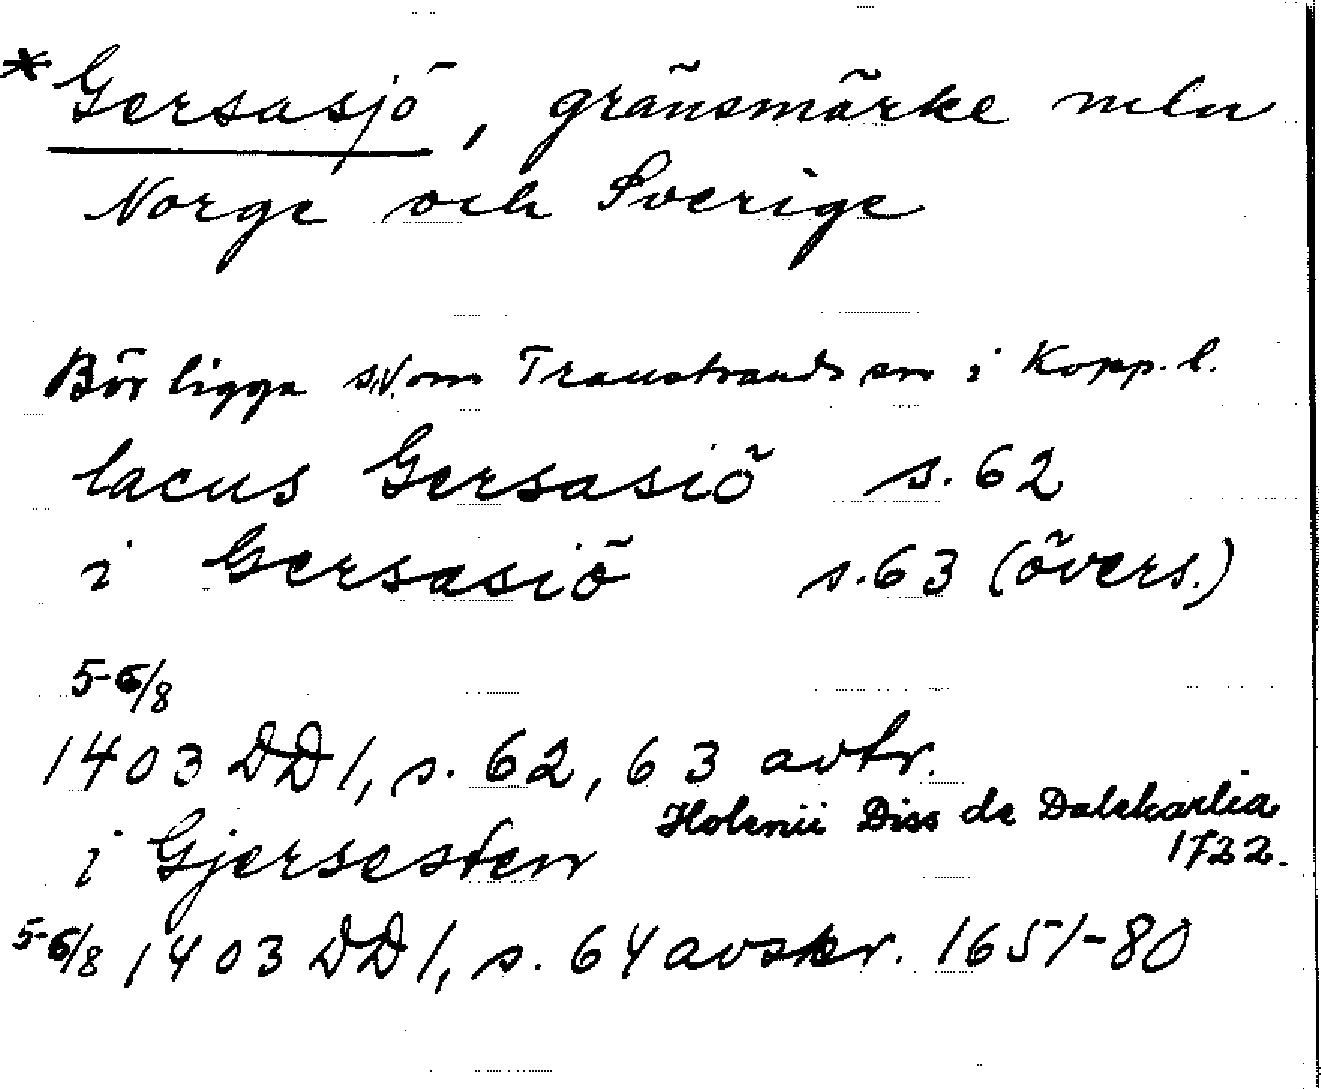 * Gersasjö, gränsmärke mln
Norge och Sverige
Bör ligga s.v. om Transtrands sn i Kopp. l.
lacus Gersasiö s. 62
i Gersasiö s. 63 (övers.)
5-6/8
1403 DD 1, s. 62, 63 avtr.
Holenii Diss de Dalekarlia
1722.
i Gjersesten
5-6/8 1403 DD 1, s. 64 avskr. 1651-80